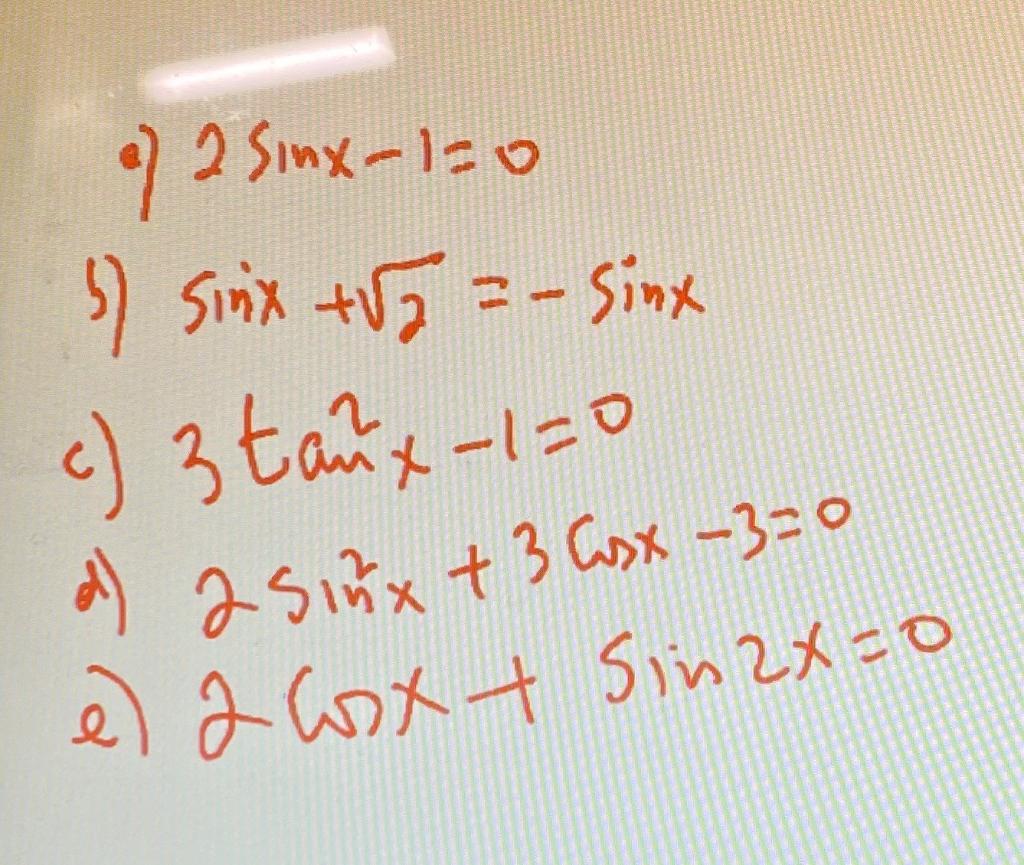 a) 2 sinx - 1 = 0
b) sinx + √2 = - sinx
c) 3 tan²x - 1 = 0
d) 2 sin²x + 3 cosx - 3 = 0
e) 2 cosx + sin2x = 0